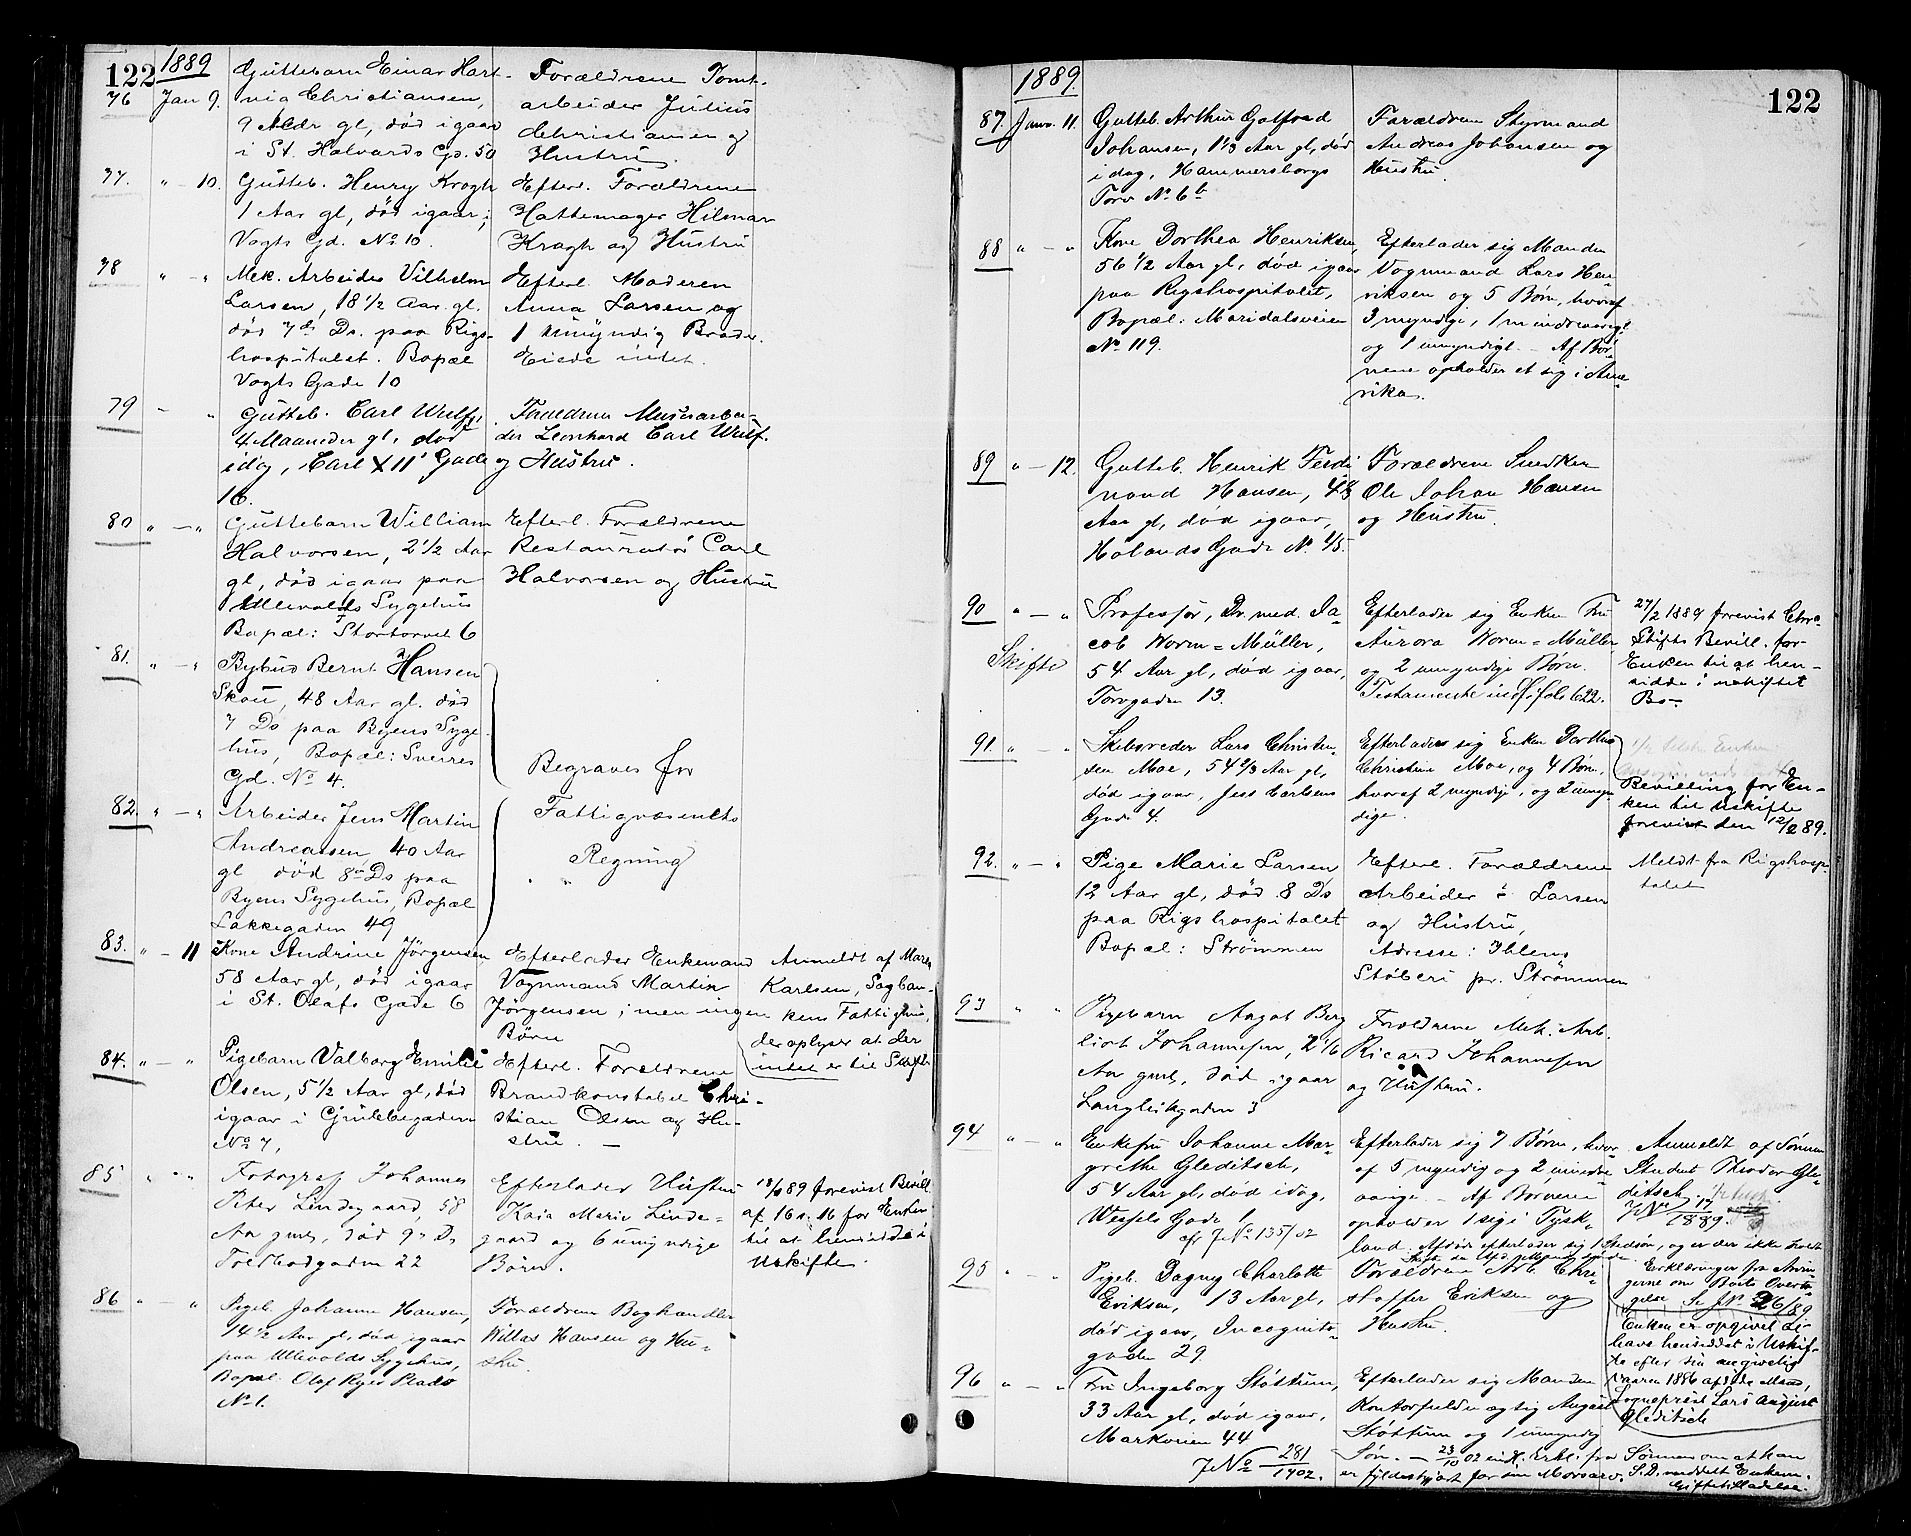 122
1889
76 Jan 9.
Guttebarn Einar Hart-
vig Christiansen,
9 Mdr gl, død igaar
i St. Halvards Gd. 50
Forældrene Tomt-
arbeider Julius
Christiansen og
Hustru.
77. " - 10.
Gutteb. Henry Krogh
1 Aar gl, død igaar;
Vogts Gd. No 10.
Efterl. Forældrene
Hattemager Hilmar
Krogh og Hustru
78 " - "
Mek. Arbeider Vilhelm
Larsen, 18 1/2 Aar gl.
død 7de Ds. paa Rigs-
hospitalet. Bopæl
Vogts Gade 10
Efterl. Moderen
Anna Larsen og
1 umyndig Broder.
Eiede intet.
79 - "
Gutteb. Carl Wulff,
4 Maaneder gl, død
idag, Carl XII' Gade
16.
Forældrene Murerarbei-
der Leonhard Carl Wulf.
og Hustru.
80 " - "
Guttebarn William
Halvorsen, 2 1/2 Aar
gl, død igaar paa
Ullevolds Sygehus
Bopæl: Stortorvet 6
Efterl. Forældrene
Restauratør Carl
Halvorsen og Hustru
81. " - "
Bybud Bernt Hansen
Skou, 48 Aar gl. død
7 Ds paa Byens Syge-
hus, Bopæl: Sverres
Gd. No 4.
Begraves for
Fattigvæsenets
Regning
82. " - "
Arbeider Jens Martin
Andreassen, 40 Aar
gl død 8de Ds paa
Byens Sygehus, Bopæl
Lakkegaden 49
" "
83. " - 11
Kone Andrine Jörgensen
58 Aar gl, død igaar
i St. Olafs Gade 6
Efterlader Enkemand
Vognmand Martin
Jörgensen; men ingen
Børn
Anmeldt af Maren
Karlsen, Sagban-
kens Fattighus,
der oplyser at der
intet er til Skifte
84. " - "
Pigebarn Valborg Emilie
Olsen, 5 1/2 Aar gl, død
igaar i Grubbegaden
No 7,
Efterl. Forældrene
Brandkonstabel Chri-
stian Olsen og Hu-
stru. -
85 " "
Fotograf Johannes
Peter Lindegaard, 58
Aar gml, død 9 Ds
Toldbodgaden 22
Efterlader Hustru
Kaia Marie Linde-
gaard og 6 umyndige
Børn.
89 forevist Bevill.
af 16 s. 16 for Enken
til at hensidde i
Uskifte.
86 " "
Pigeb. Johanne Hansen,
14 1/2 Aar gl, død igaar
paa Ullevolds Sygehus,
Bopæl. Olaf Ryes Plads
No 1.
Forældrene Boghandler
Nillas Hansen og Hu-
stru.
122
1889.
87. Janr. 11.
Gutteb. Arthur Gotfred
Johansen, 1 1/3 Aar gl, død
idag, Hammersborgs
Torv No 6 b
Forældrene Styrmand
Andreas Johansen og
Hustru.
88 " - "
Kone Dorthea Henriksen,
56 1/2 Aar gl, død igaar
paa Rigshospitalet,
Bopæl: Maridalsveien
No 119.
Efterlader sig Manden
Vognmand Lars Hen-
riksen og 5 Børn, hvoraf
3 myndige, 1 mindreaarigt
og 1 umyndigt. - Af Bør-
nene opholder et sig i Ame-
rika.
89 " - 12.
Gutteb. Henrik Ferdi
nand Hansen,
Aar gl, død igaar,
Holands Gade No. 45.
Forældrene Snedker
Ole Johan Hansen
og Hustru.
90 " - "
Skifte
Professor, Dr. med. Ja-
cob Worm-Müller,
54 Aar gl, død igaar,
Torvgaden 13.
Efterlader sig Enken Fru
Aurora Worm-Müller
og 2 umyndige Børn.
Testamente indf. i fol. 622.
27/2 1889 forevist Chra
Stifts Bevill. for
Enken til at hen-
sidde i uskiftet
Bo-
91. " - "
Skibsreder Lars Christen-
sen Moe, 54 2/3 Aar gl,
død igaar, Jess Carlsens
Gade 4.
Efterlader sig Enken Dorthea
Christine Moe, og 4 Børn,
hvoraf 2 myndige, og 2 umyn-
dige.
Bevilling for En-
ken til Uskifte
forevist den 12/2 89.
92. " - "
Pige Marie Larsen
12 Aar gl, død 8 Ds
paa Rigshospitalet
Bopæl: Strømmen
Efterl. Forældrene
Arbeider Larsen
og Hustru,
Adresse: Iblens
Støberi pr. Strømmen
Meldt fra Rigshospi-
talet
93 " "
Pigebarn Aagot Berg
liot Johannesen, 2 1/6
Aar gml, død igaar
Langleikgaden 3
Forældrene Mek. Arb.
Ricard Johannesen
og Hustru.
94 " - "
Enkefru Johanne Mar-
grethe Gleditsch,
54 Aar gl, død idag,
Wessels Gade 1
cfr JNo 135/02
Efterlader sig 7 Børn, hvor-
af 5 myndig og 2 mindre
aarige. - Af Børnene
opholder 1 sig i Tysk-
land. Afdøde efterlader sig 1 Stedsøn, og er der ikke holdt
Skifte
Anmeldt af Sønnen
Student Theodor Gle-
ditsch.
JNo 17/1889.
Erklæringer fra Arvin-
gerne om Boets Overta-
gelse Se JNo 26/89
Enken er opgivet at
have hensiddet i Uskif-
te efter sin angivelig
Vaaren 1886 afdøde Mand,
Sogneprest Lars August
Gleditsch
95 " "
Pigeb. Dagny Charlotte
Eriksen, 13 Aar gl,
død igaar, Incognito-
gaden 29.
Forældrene Arb. Chri-
stoffer Eriksen og
Hustru.
96 " - "
Fru Ingeborg Støttum,
33 Aar gl, død igaar,
Markveien 44
JNo 281/1902.
Efterlader sig Manden
Kontorfuldmægtig August
Støttum og 1 umyndig
Søn. - 23/10 02 indk. Erkl. fra Sønnen om at han
er fyldestgjort for sin Morsarv. S. D. meddelt Enkem.
Giftetilladelse.